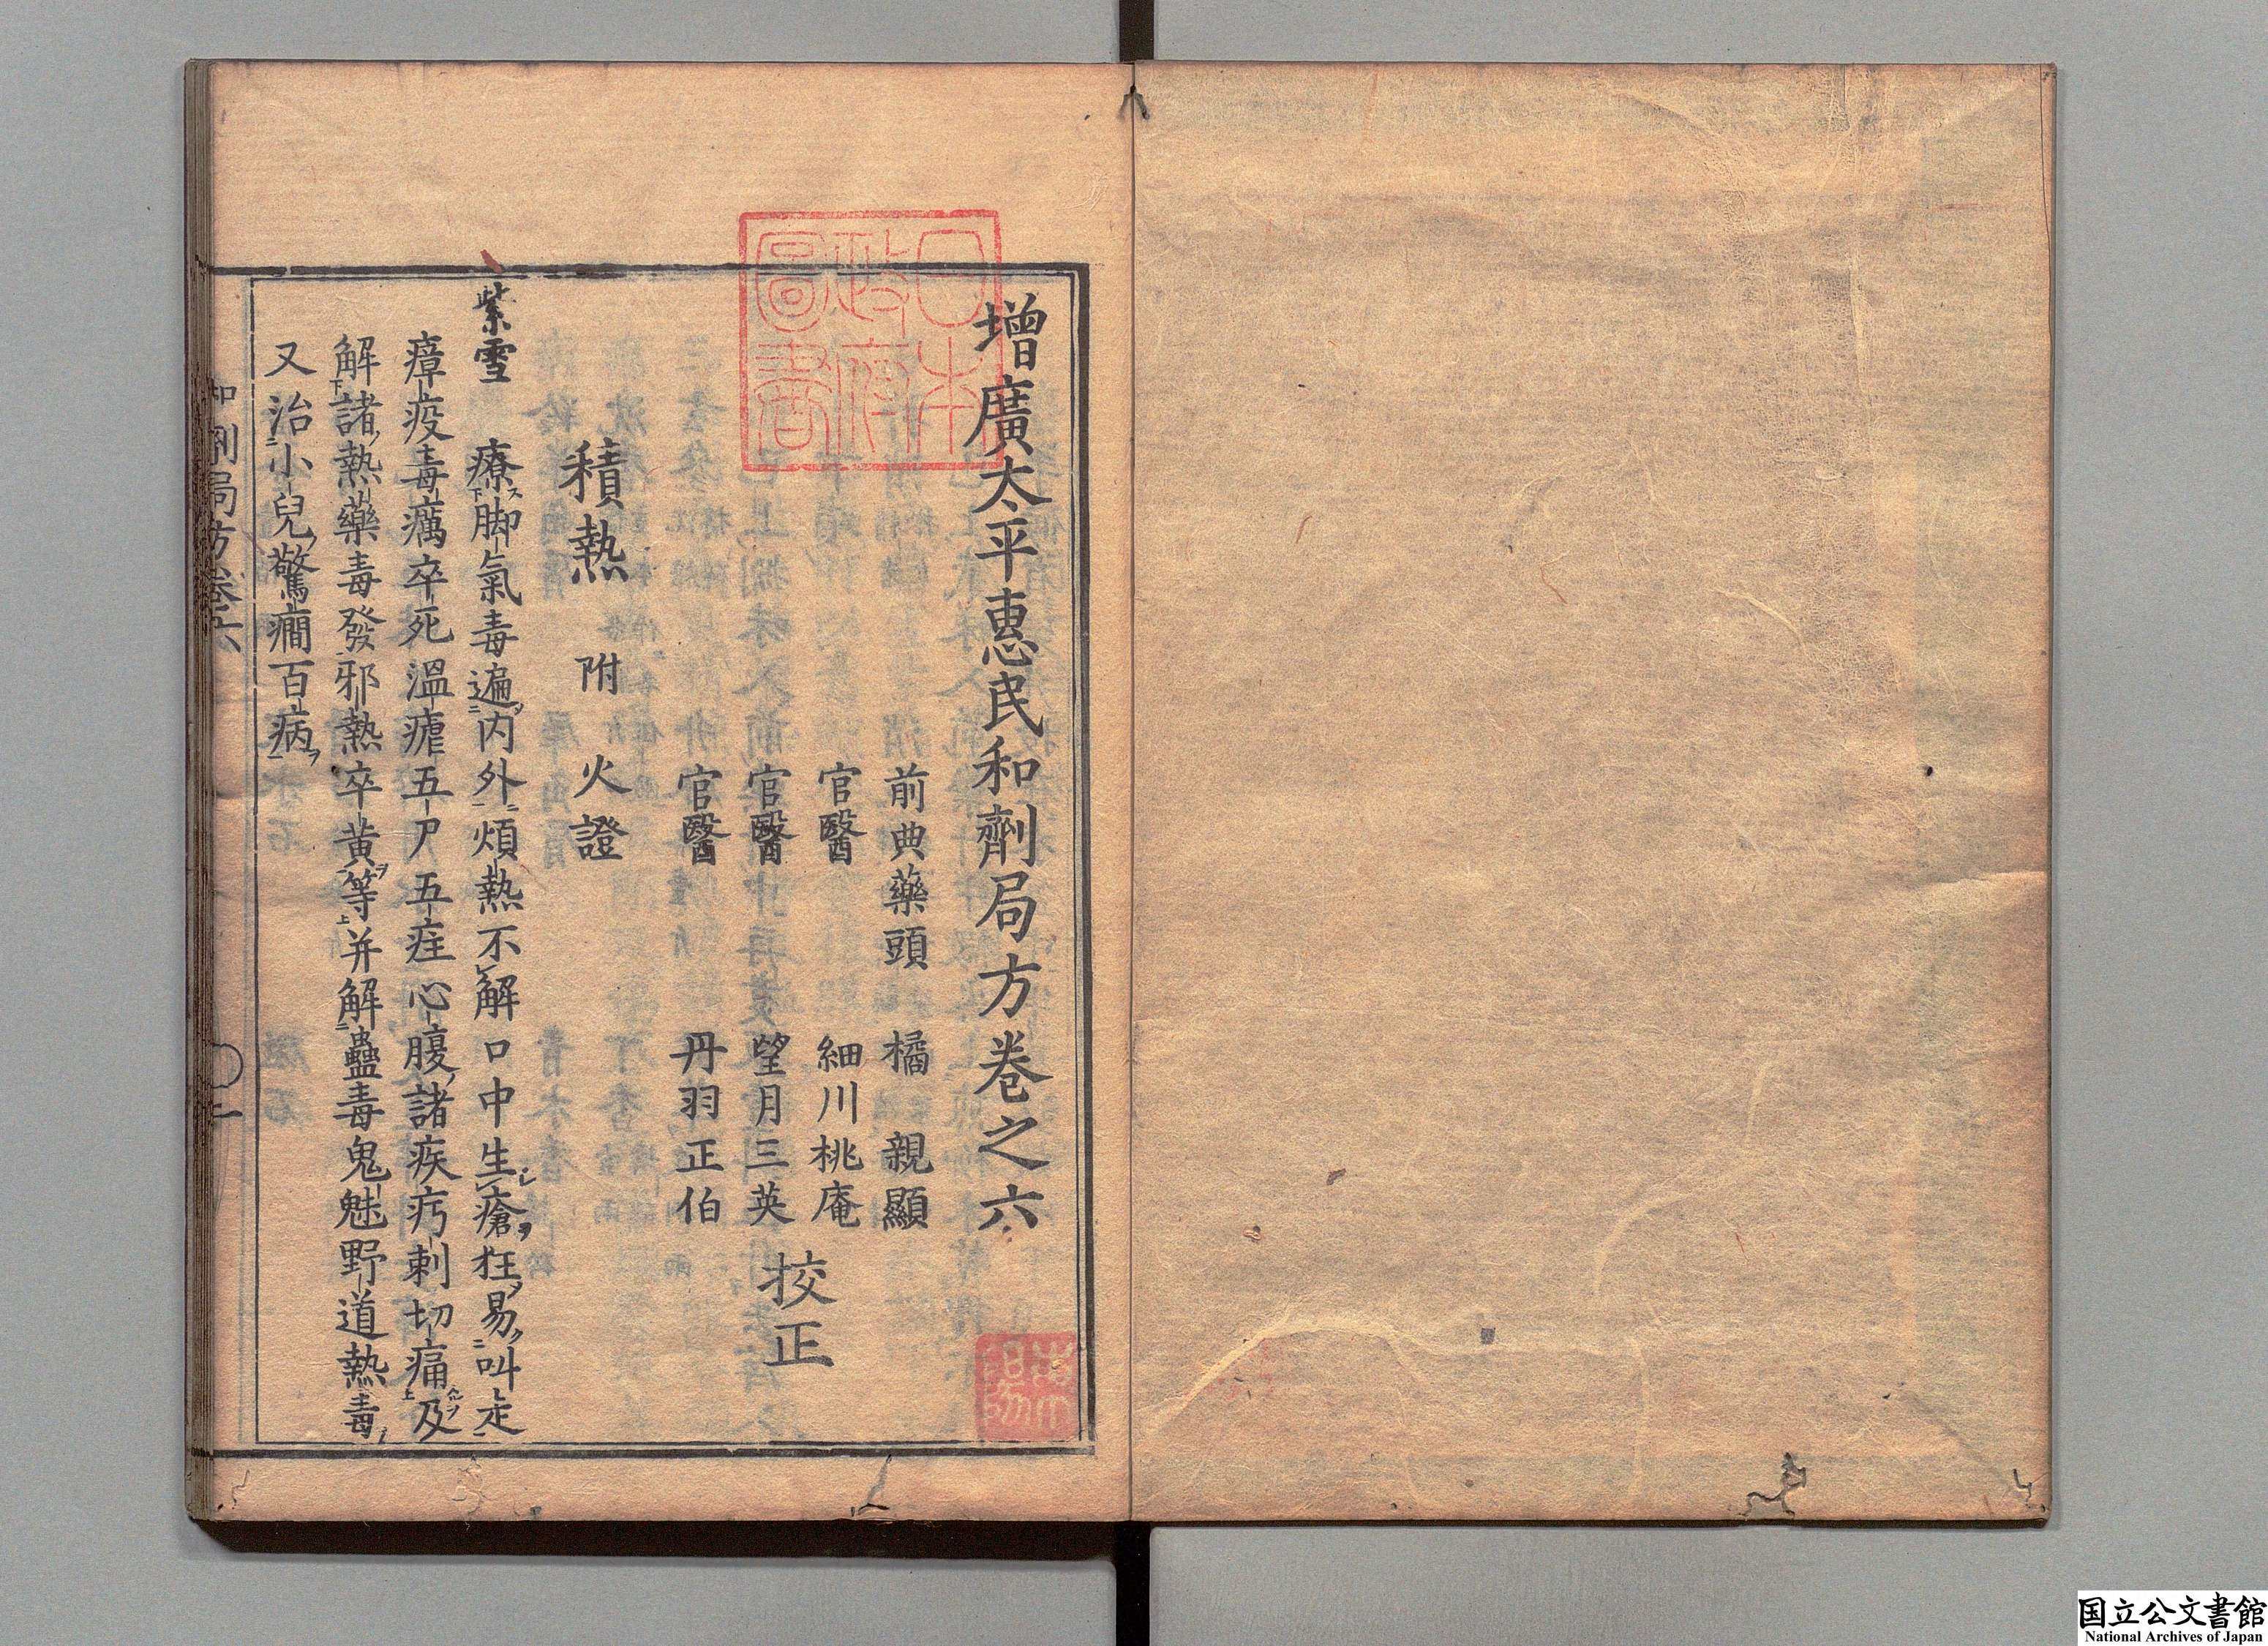 增廣太平惠民和劑局方卷之六
前典藥頭　橘　親顯
官醫　細川桃庵
官醫　望月三英
官醫　丹羽正伯
挍正
積熱　附　火證
紫雪　療脚氣毒遍內外煩熱不解口中生瘡狂易叫走
瘴疫毒癘卒死溫瘧五尸五疰心腹諸疾㽱刺切痛及
解諸熱藥毒發邪熱卒黃等并解蠱毒鬼魅野道熱毒
又治小兒驚癇百病
和劑局方卷六
一
日本
政府
圖書
国立公文書館
National Archives of Japan